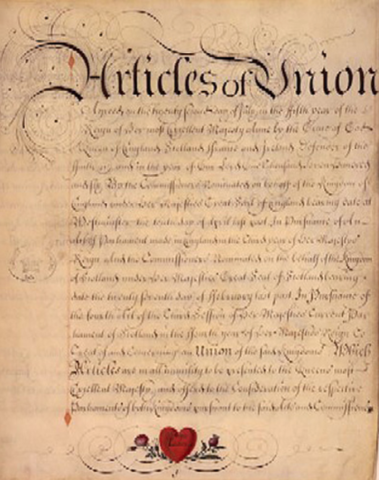 Articles of Union
Agreed on the twenty second day of July in the fifth year of the
Reign of Her most Excellent Majesty Anne by the Grace of God
Queen of England Scotland France and Ireland Defender of the
Faith &c and in the year of Our Lord One thousand Seven hundred
and six By the Commissioners Nominated on behalf of the Kingdom of
England under Her Majesties Great Seal of England bearing date at
Westminster the tenth day of April last past In pursuance of
Act of Parliament made in England in the third year of Her Majesties
Reign and the Commissioners Nominated on the behalf of the Kingdom
of Scotland under Her Majesties Great Seal of Scotland bearing
date the twenty seventh day of February last past In pursuance of
the fourth Act of the third Session of Her Majesties Current Par
liament of Scotland in the fourth year of Her Majesties Reign to
Treat of and Concerning an Union of the said Kingdoms Which
Articles are in all humility to be presented to the Queens most
Excellent Majesty and offered to the Consideration of the respective
Parliaments of both Kingdoms pursuant to the said Acts and Commissions